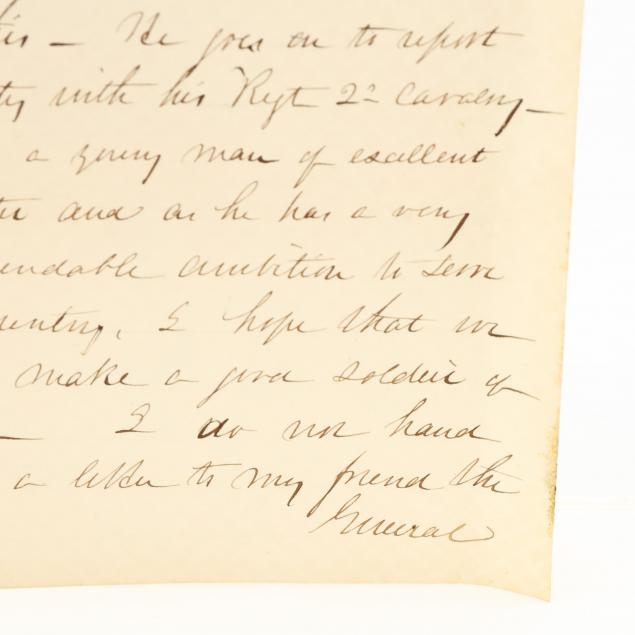 — He goes on to report
with his Regt 2d Cavalry —
a young man of excellent
and as he has a very
ambition to serve
I hope that we
make a good soldier of
— I do not hand
a letter to my friend the
General